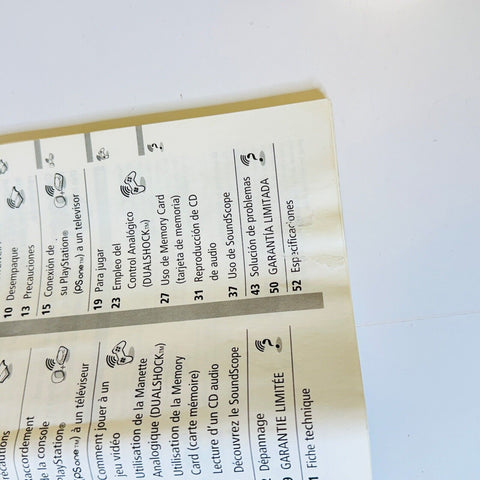 10 Desempaque
13 Precauciones
15 Conexión de
su PlayStation®
(PSone™) a un televisor
19 Para jugar
23 Empleo del
Control Analógico
(DUALSHOCK™)
27 Uso de Memory Card
(tarjeta de memoria)
31 Reproducción de CD
de audio
37 Uso de SoundScope
43 Solución de problemas
50 GARANTÍA LIMITADA
52 Especificaciones
Précautions
Raccordement
de la console
PlayStation®
(PSone™) à un téléviseur
Comment jouer à un
jeu vidéo
Utilisation de la Manette
Analogique (DUALSHOCK™)
Utilisation de la Memory
Card (carte mémoire)
Lecture d'un CD audio
Découvrez le SoundScope
Dépannage
GARANTIE LIMITÉE
Fiche technique